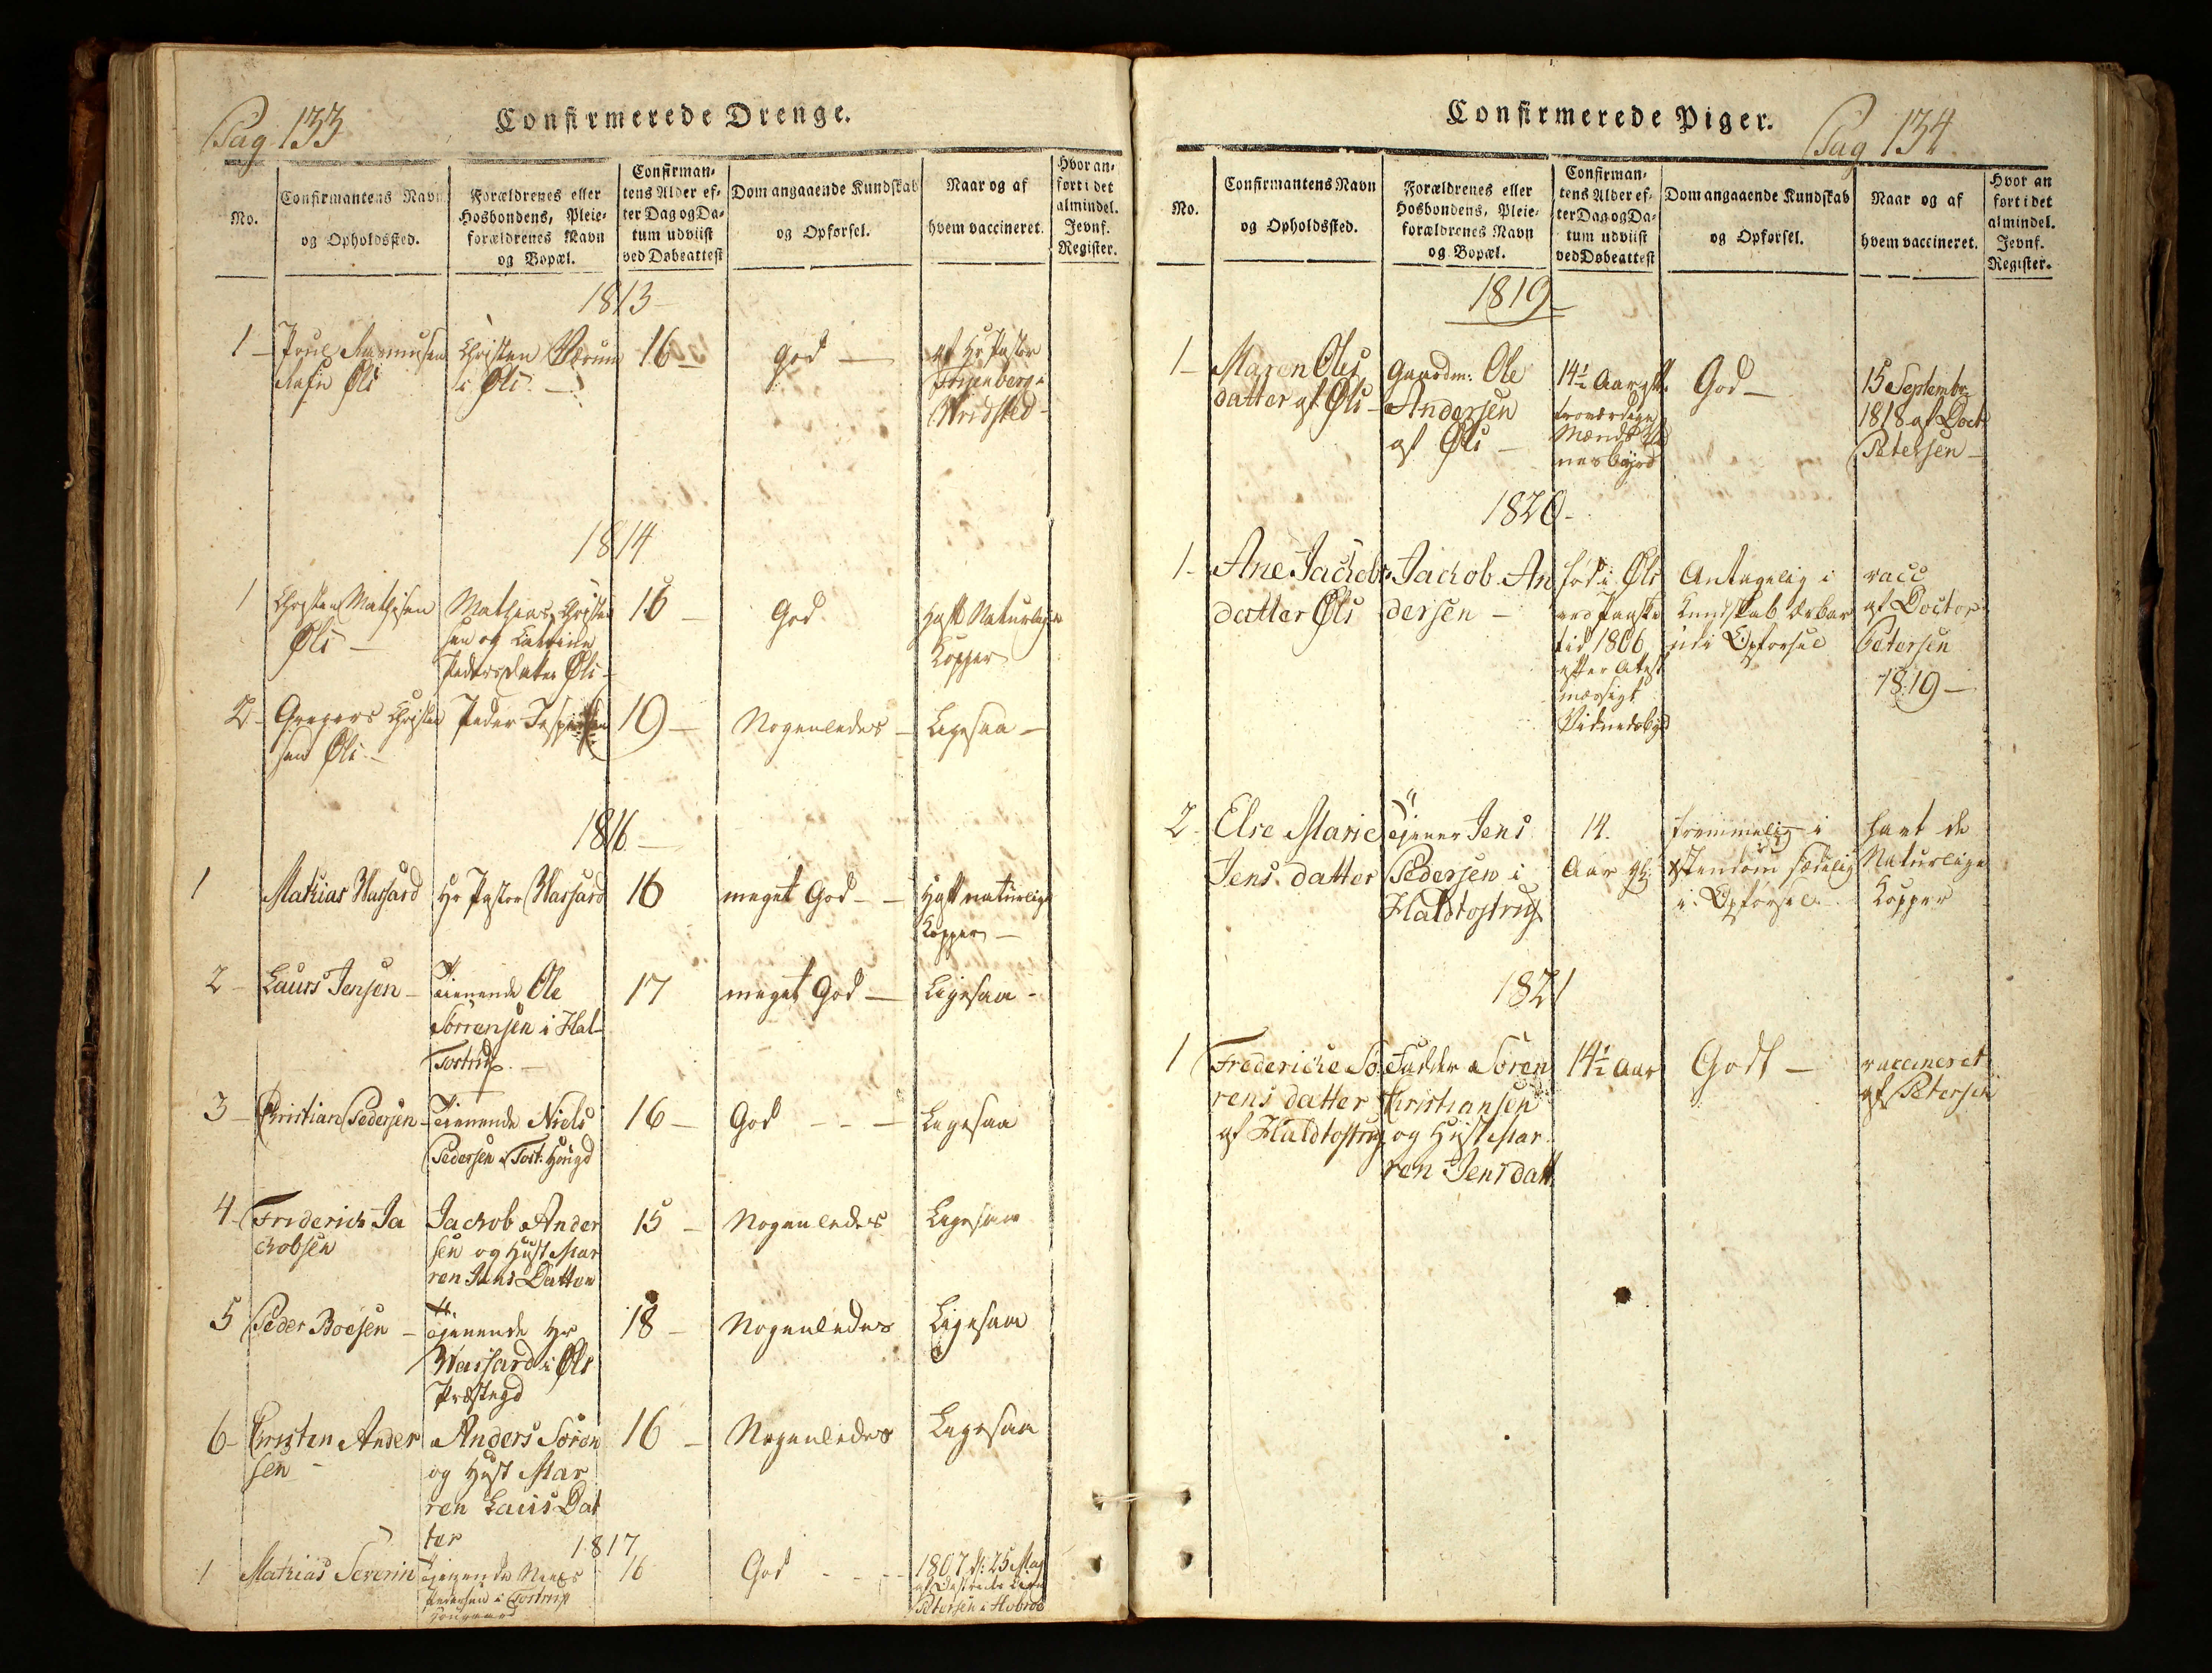 Pag. 133
Confirmerede Drenge.
No.
Confirmantens Navn
og Opholdssted.
Forældrenes eller
Hosbondens, Pleie-
forældrenes Navn
og Bopæl.
Confirman-
tens Alder ef-
ter Dag og Da-
tum udviist
ved Døbeattest
Dom angaaende Kundskab
og Opførsel.
Naar og af
hvem vaccineret.
Hvor an-
ført i det
almindel.
Jevnf.
Register.
1813
1 Poul Rasmusen
Øls
Christen
i Øls
16
god
af Hr Pastor
1814
1 Christen Mathisen
Øls
Mathias Christen
sen og Catrine
Pedersdatter Øls
16
God
Haft Naturlige
Kopper
2 Gregers Christen
sen Øls
Peder Jespersen
19
Nogenledes
Ligesaa
1816
1 Mathias Wassard
Hr Pastor Wassard
16
meget God
Haft naturlige
Kopper
2 Laurs Jensen
tienende Ole
Sörrensen i Hal-
Tostrup
17
meget God
Ligesaa
3 Christian Pedersen
Tienende Niels
Pedersen
16
God
Ligesaa
4 Friderich Ja
chobsen
Jachob Ander
sen og Hust Mar
ren Jens Datter
15
Nogenledes
Ligesaa
5 Peder Boesen
tjenende Hr
Wassard i Øls
Præstegd
18
Nogenledes
Ligesaa
6 Christen Ander
sen
Anders Sören
og Hust Mar
ren Laurs Dat
ter
16
Nogenledes
Ligesaa
1817
1 Mathias Severin
tjenende Niels
Pedersen i Tostrup
16
God
1807 d: 25 May
Petersen i Hobroe
Confirmerede Piger.
Pag 134
No.
Confirmantens Navn
og Opholdssted.
Forældrenes eller
Hosbondens, Pleie-
forældrenes Navn
og Bopæl.
Confirman-
tens Alder ef-
ter Dag og Da-
tum udviist
ved Døbeattest
Dom angaaende Kundskab
og Opførsel.
Naar og af
hvem vaccineret.
Hvor an
ført i det
almindel.
Jevnf.
Register.
1819
1 Maren Oles
datter af Øls
Gaardm: Ole
Andersen
af Øls
14½ Aar
troværdige
Mænds
God
15 Septembr
1818 af Doct
Petersen
1820
1 Ane Jachobs
datter Øls
Jachob An
dersen
föd i Øls
ved Paaske
tid 1806
efter
Antagelig i
Kundskab
udi Opførsel
vacc
af Doctor
Petersen
1819
2 Else Marie
Jens datter
tjener Jens
Pedersen i
Haldtostrup
14
Aar
sædelig
i Opførsel
havt de
Naturlige
Kopper
1821
1 Frederiche Sö
rens datter
af Haldtostrup
Fader Sören
Christiansen
og Hust Mar
ren Jensdatt
14½ Aar
Godt
vaccineret
af Petersen